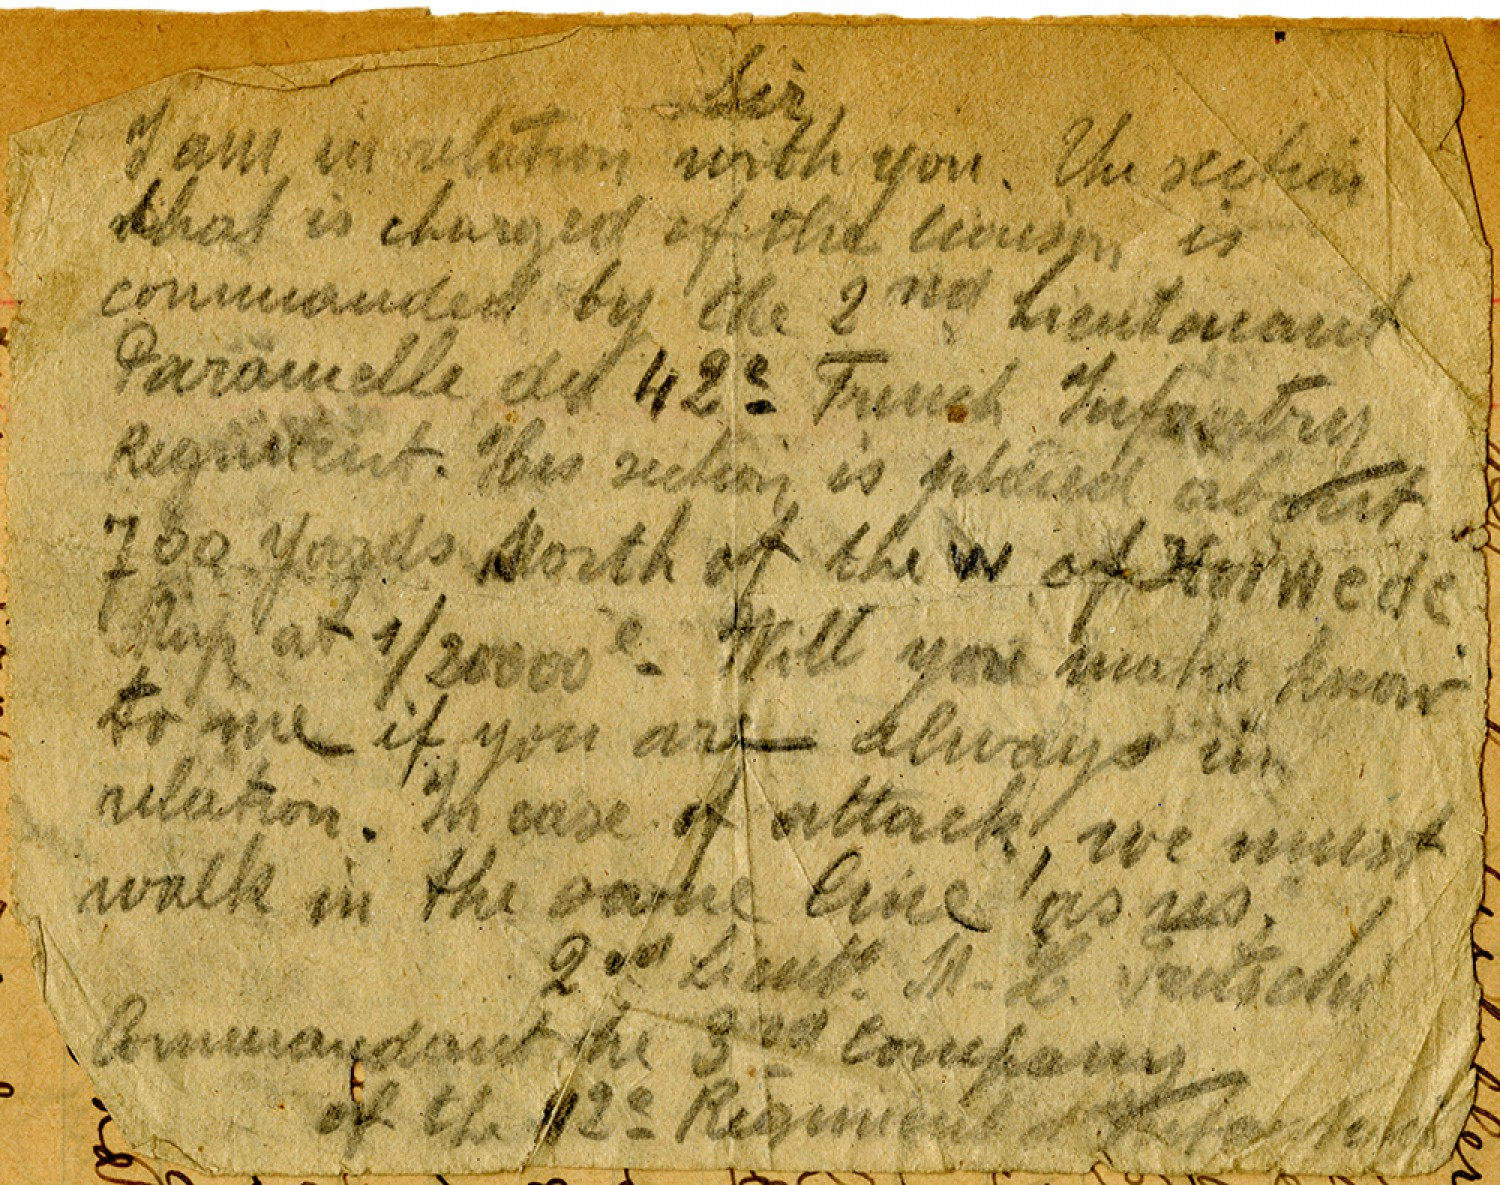 Sir,
I am in relation with you. The section
that is charged of the liaison, is
commanded by the 2nd Lieutenant
Paramelle du 42e French Infantry
Regiment. His section is placed about
700 Yards North of the W of
Map at 1/20000e. Will you make know
to me if you are always in
relation. In case of attack, we must
walk in the same line as us.
2nd Lieut. M-
Commandant the 3rd Company
of the 42e Regiment d'Infanterie